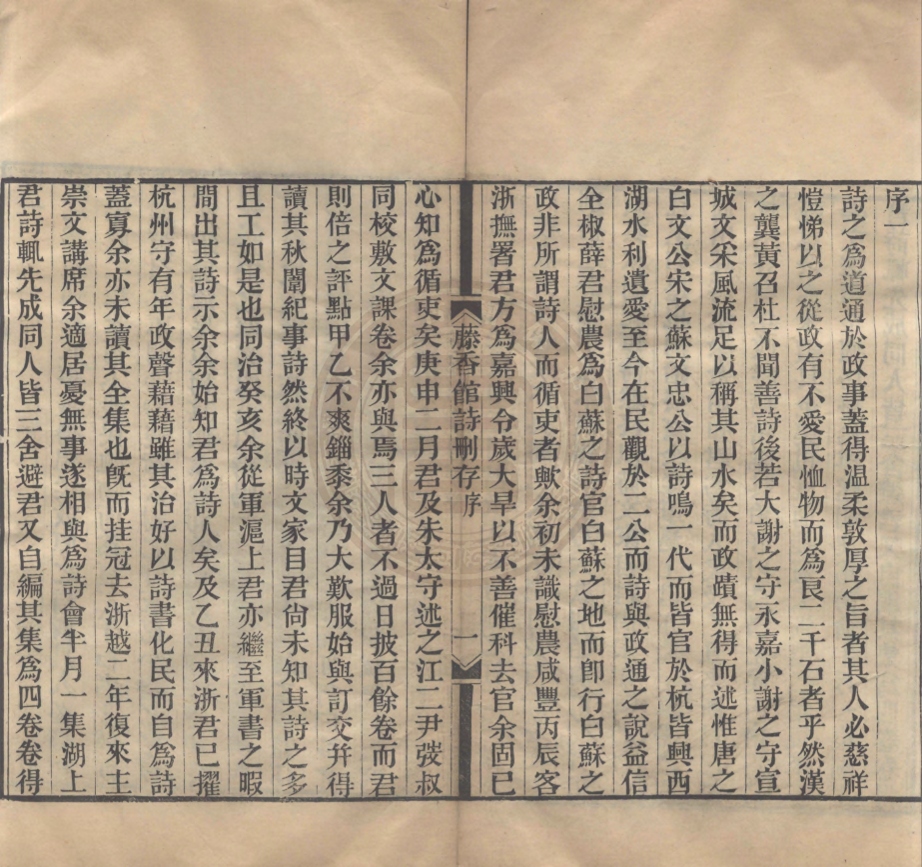 序一
詩之爲道通於政事蓋得温柔敦厚之旨者其人必慈祥
愷悌以之從政有不愛民恤物而爲良二千石者乎然漢
之龔黃召杜不聞善詩後若大謝之守永嘉小謝之守宣
城文采風流足以稱其山水矣而政蹟無得而述惟唐之
白文公宋之蘇文忠公以詩鳴一代而皆官於杭皆興西
湖水利遺愛至今在民觀於二公而詩與政通之說益信
全椒薛君慰農爲白蘇之詩官白蘇之地而卽行白蘇之
政非所謂詩人而循吏者歟余初未識慰農咸豐丙辰客
浙撫署君方爲嘉興令歲大旱以不善催科去官余固已
藤香館詩刪存序 一
心知爲循吏矣庚申二月君及朱太守述之江二尹弢叔
同校敷文課卷余亦與焉三人者不過日披百餘卷而君
則倍之評點甲乙不爽錙黍余乃大歎服始與訂交幷得
讀其秋闈紀事詩然終以時文家目君尙未知其詩之多
且工如是也同治癸亥余從軍滬上君亦繼至軍書之暇
間出其詩示余余始知君爲詩人矣及乙丑來浙君已擢
杭州守有年政聲藉藉雖其治好以詩書化民而自爲詩
蓋寡余亦未讀其全集也旣而挂冠去浙越二年復來主
崇文講席余適居憂無事遂相與爲詩會半月一集湖上
君詩輒先成同人皆三舍避君又自編其集爲四卷卷得